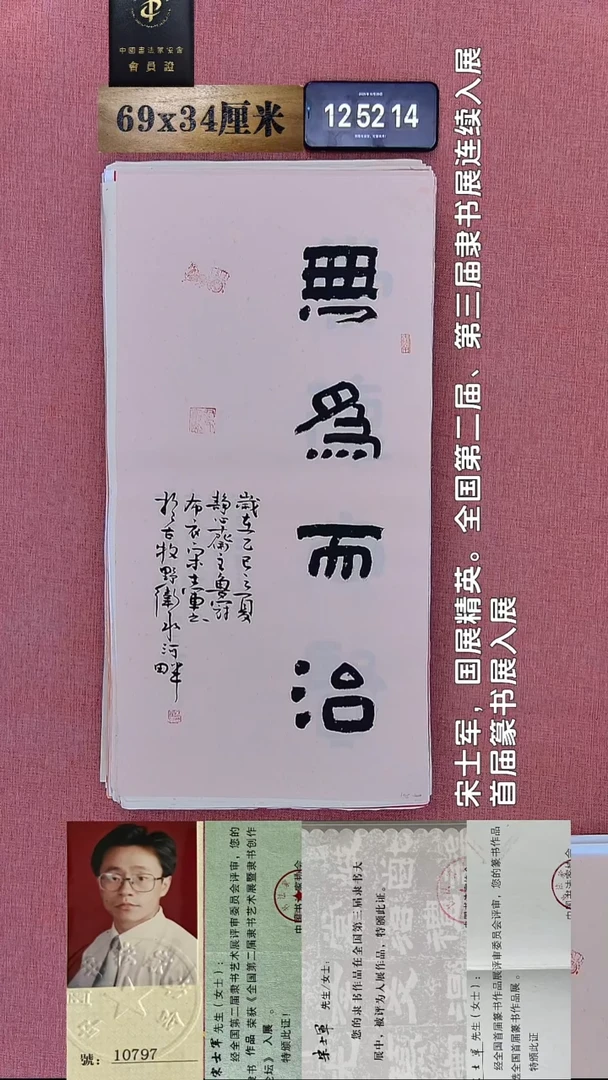 中國書法家協會
會員證
69x34厘米
12 52 14
無為而治
歲在乙巳之夏
静心齋主魯
布衣宋士軍書
於古牧野衛水河畔
宋士军，国展精英。全国第二届、第三届隶书展连续入展
首届篆书展入展
號: 10797
宋士军 先生(女士):
经全国第二届隶书艺术展评审委员会评审，您的
书 作品 荣获《全国第二届隶书艺术展暨隶书创作
坛》入展。
特颁此证!
宋士軍 先生/女士:
您的隶书作品在全国第三届隶书大
展中，被评为入展作品，特颁此证。
士军 先生(女士):
经全国首届篆书作品展评审委员会评审，您的篆书作品
选全国首届篆书作品展。
特颁此证